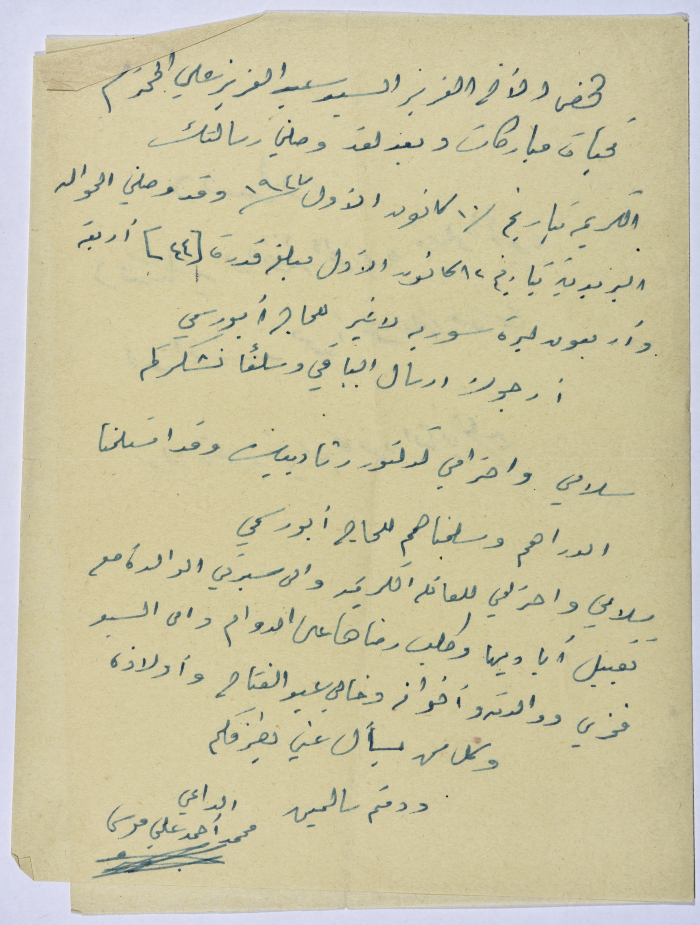 حضرة الأخ العزيز السيد عبد العزيز علي المحترم
تحيات مباركات وبعد لقد وصلني رسالتك
الكريمة بتاريخ ١٠ كانون الأول ١٩٤٧ وقد وصلني الحوالة
البريدية بتاريخ ١٢ كانون الأول مبلغ قدره [٤٤] أربعة
وأربعون ليرة سورية لا غير للحاج أبو رسمي
أرجوك ارسال الباقي وسلفًا نشكركم
سلامي واحترامي لدكتور وقد استلمنا
الدراهم وسلمناهم للحاج أبو رسمي
سلامي واحترامي للعائلة الكريمة والى سيدتي الوالدة مع
تقبيل أياديها وطلب رضاها على الدوام والى السيد
فخري ووالدته وأخوانه وخالي عبد الفتاح وأولاده
وكل من يسأل عني بطرفكم
ودمتم سالمين
الداعي
محمد أحمد علي موسى